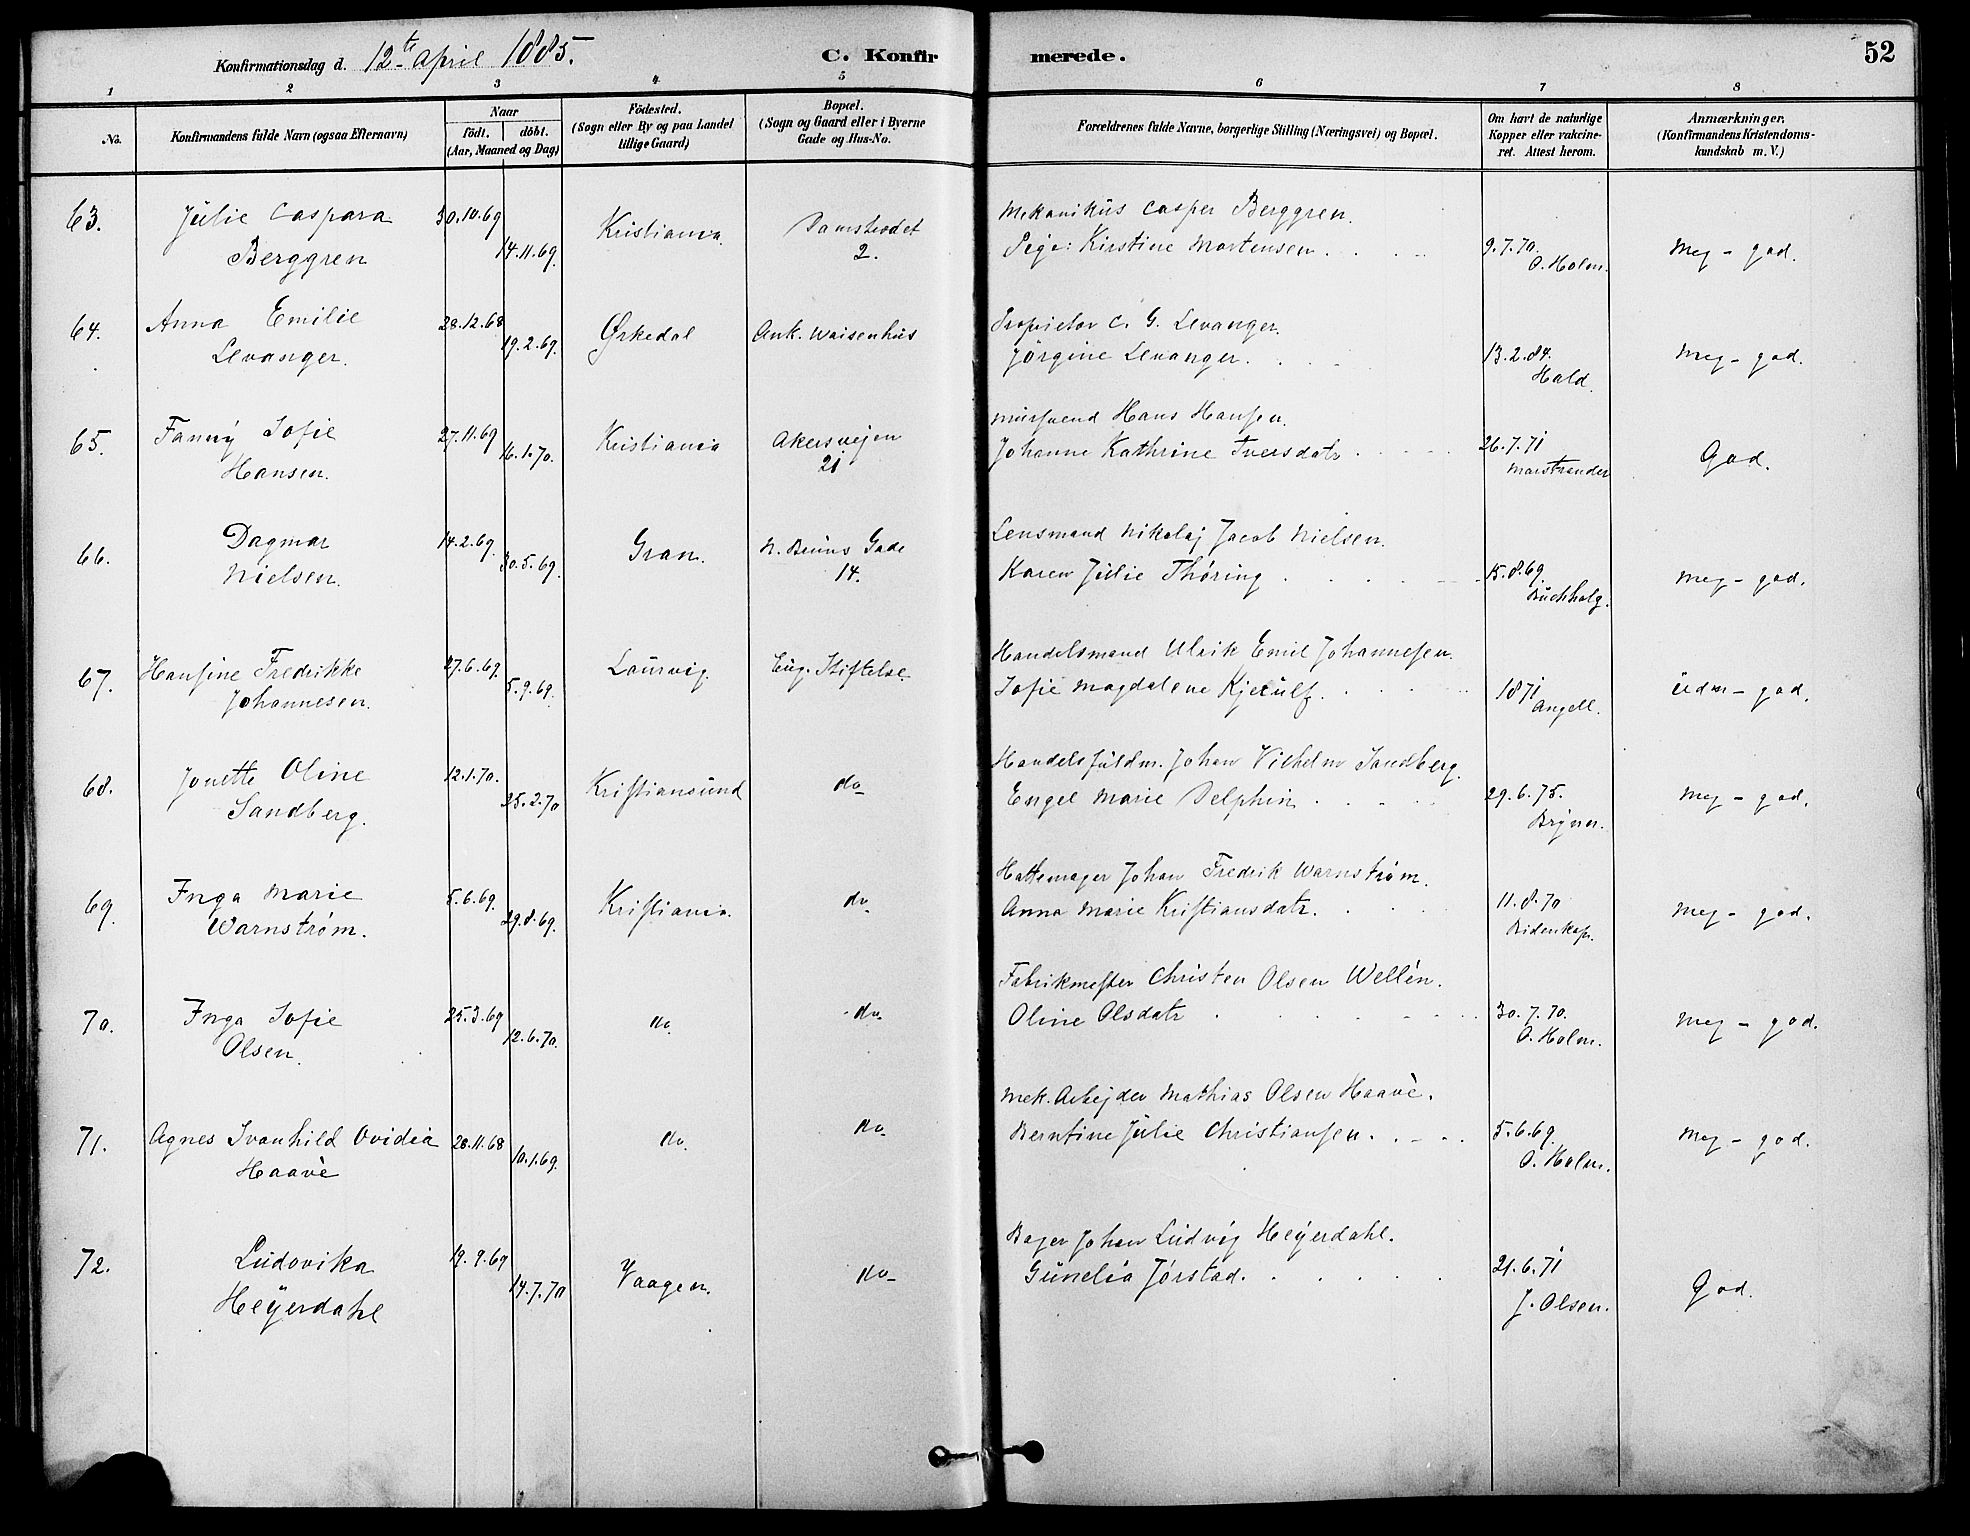 Konfirmationsdag d. 12te April 1885.
C. Konfirmerede.
52
1 2 3 4 5 6 7 8
No.
Konfirmandens fulde Navn (ogsaa Efternavn)
Naar
födt. döbt.
(Aar, Maaned og Dag)
Födested.
(Sogn eller By og paa Landet
tillige Gaard)
Bopæl.
(Sogn og Gaard eller i Byerne
Gade og Hus-No.
Forældrenes fulde Navne, borgerlige Stilling (Næringsvei) og Bopæl.
Om havt de naturlige
Kopper eller vakcine-
ret. Attest herom.
Anmærkninger.
(Konfirmandens Kristendoms-
kundskab m. V.)
63. Julie Caspara 30.10.69 Kristiania Damstrædet Mekanikus Casper Berggren.
Berggren 14.11.69. 2. Pige: Kirstine Mortensen. 9.7.70. O. Holm. Meg - god.
64. Anna Emilie 28.12.68 Ørkedal Ank. Waisenhus Proprietor C. G. Levanger.
Levanger. 19.2.69. Jörgine Levanger. 13.2.84. Hald. Meg - god.
65. Fanny Sofie 27.11.69 Kristiania Akersvejen Mursvend Hans Hansen.
Hansen. 16.1.70. 21 Johanne Kathrine Iversdatr. 26.7.71 Marstrander God.
66. Dagmar 14.2.69. Gran. N. Bruns Gade Lensmand Nikolaj Jacob Nielsen.
Nielsen. 30.5.69. 14. Karen Julie Thøring 15.8.69. Buchholz. Meg - god.
67. Hansine Fredrikke 27.6.69. Laurvig. Eug. Stiftelse. Handelsmand Ulrik Emil Johannesen.
Johannesen. 5.9.69. Sofie Magdalene Kjerulf. 1871 Angell. Udm - god.
68. Jonette Oline 12.1.70. Kristiansund do Handelsfuldm. Johan Vilhelm Sandberg.
Sandberg. 25.2.70 Engel Marie Delphin 29.6.75. Brÿnn. Meg - god.
69. Inga Marie 5.6.69. Kristiania. do Hattemager Johan Fredrik Warnstrøm.
Warnstrøm. 29.8.69. Anna Marie Kristiansdatr. 11.8.70 Bidenkap. Meg - god.
70. Inga Sofie 25.3.69 do. do. Fabrikmester Christen Olsen Wellén.
Olsen. 12.6.70. Oline Olsdatr 30.7.70. O. Holm. Meg - god.
71. Agnes Svanhild Ovidia 28.11.68 do. do Mek. Arbejder Mathias Olsen Haavè.
Haavè 10.1.69. Berntine Julie Christiansen. 5.6.69. O. Holm. Meg - god.
72. Ludovika 19.9.69 Vaagen. do Bager Johan Ludvig Heÿerdahl.
Heÿerdahl 14.7.70 Gunelia Jørstad. 21.6.71 J. Olsen. God.